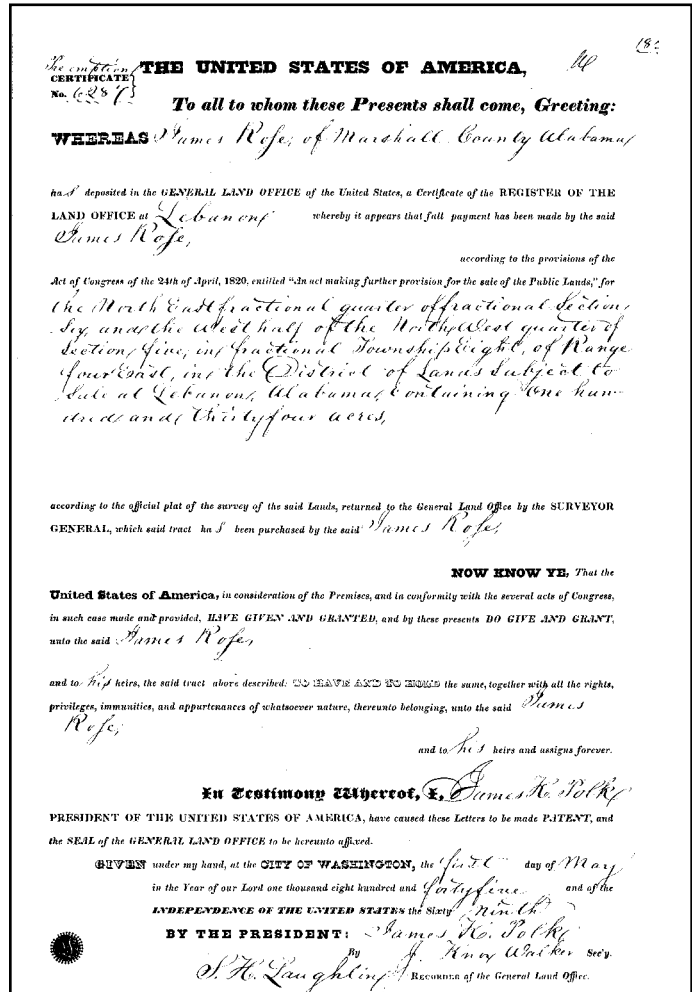 18
Pre emption
THE UNITED STATES OF AMERICA,
CERTIFICATE
No. 6287
To all to whom these Presents shall come, Greeting:
WHEREAS James Rose, of Marshall County Alabama
has deposited in the GENERAL LAND OFFICE of the United States, a Certificate of the REGISTER OF THE
LAND OFFICE at Lebanon, whereby it appears that full payment has been made by the said
James Rose,
according to the provisions of the
Act of Congress of the 24th of April, 1820, entitled “An act making further provision for the sale of the Public Lands,” for
the North East fractional quarter of fractional Section,
Six, and the West half of the North West quarter of
Section, five, in, fractional Township Eight, of Range
four East, in the District of Lands Subject to
Sale at Lebanon, Alabama, containing One hun-
dred and thirty four acres,
according to the official plat of the survey of the said Lands, returned to the General Land Office by the SURVEYOR
GENERAL, which said tract has been purchased by the said James Rose,
NOW KNOW YE, That the
United States of America, in consideration of the Premises, and in conformity with the several acts of Congress,
in such case made and provided, HAVE GIVEN AND GRANTED, and by these presents DO GIVE AND GRANT,
unto the said James Rose,
and to his heirs, the said tract above described: TO HAVE AND TO HOLD the same, together with all the rights,
privileges, immunities, and appurtenances of whatsoever nature, thereunto belonging, unto the said James
Rose,
and to his heirs and assigns forever.
In Testimony Whereof, I, James K. Polk,
PRESIDENT OF THE UNITED STATES OF AMERICA, have caused these Letters to be made PATENT, and
the SEAL of the GENERAL LAND OFFICE to be hereunto affixed.
GIVEN under my hand, at the CITY OF WASHINGTON, the first day of May
in the Year of our Lord one thousand eight hundred and forty five and of the
INDEPENDENCE OF THE UNITED STATES the Sixty ninth
BY THE PRESIDENT: James K. Polk,
By J. Knox Walker Sec'y.
S. H. Laughlin, RECORDER of the General Land Office.